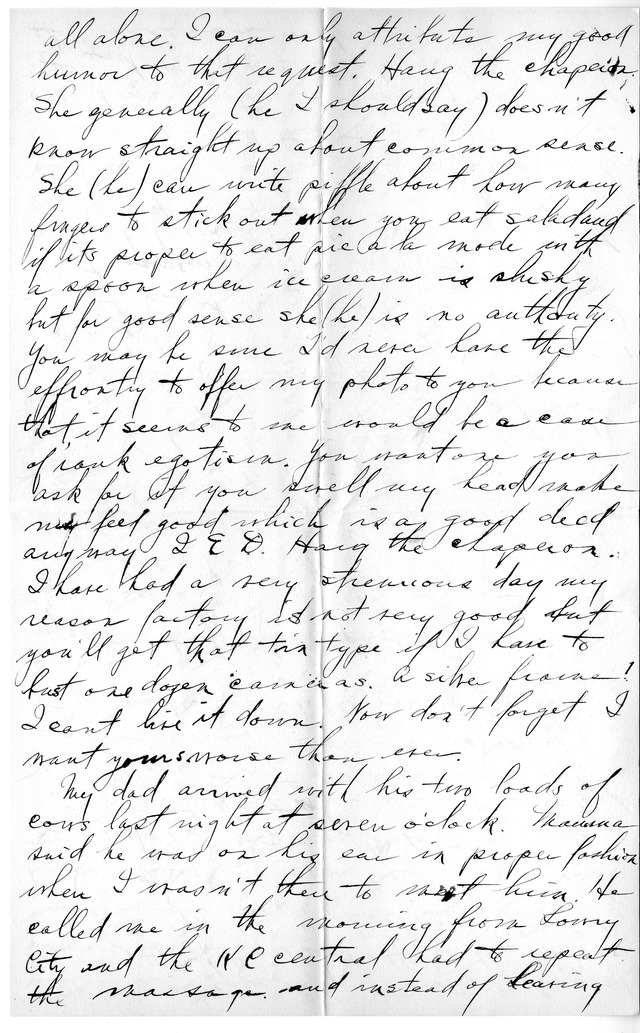 all alone. I can only attribute my good
humor to that request. Hang the chaperon.
She generally (he I should say) doesn't
know straight up about common sense.
She (he) can write piffle about how many
fingers to stick out when you eat salad and
if its proper to eat pie a la mode with
a spoon when ice cream is slushy
but for good sense she (he) is no authority.
You may be sure I'd never have the
effrontry to offer my photo to you because
that it seems to me would be a case
of rank egotism. You want one you
ask for it you swell my head make
me feel good which is a good deed
anyway I E D. Hang the chaperon.
I have had a very strenuous day my
reason factory is not very good but
you'll get that tin type if I have to
bust one dozen cameras. A silver frame!
I cant live it down. Now don't forget I
want yours worse than ever.
My dad arrived with his two loads of
cows last night at seven o'clock. Mamma
said he was on his ear in proper fashion
when I wasn't there to meet him. He
called me in the morning from Lowry
City and the K C central had to repeat
the massage. and instead of leaving